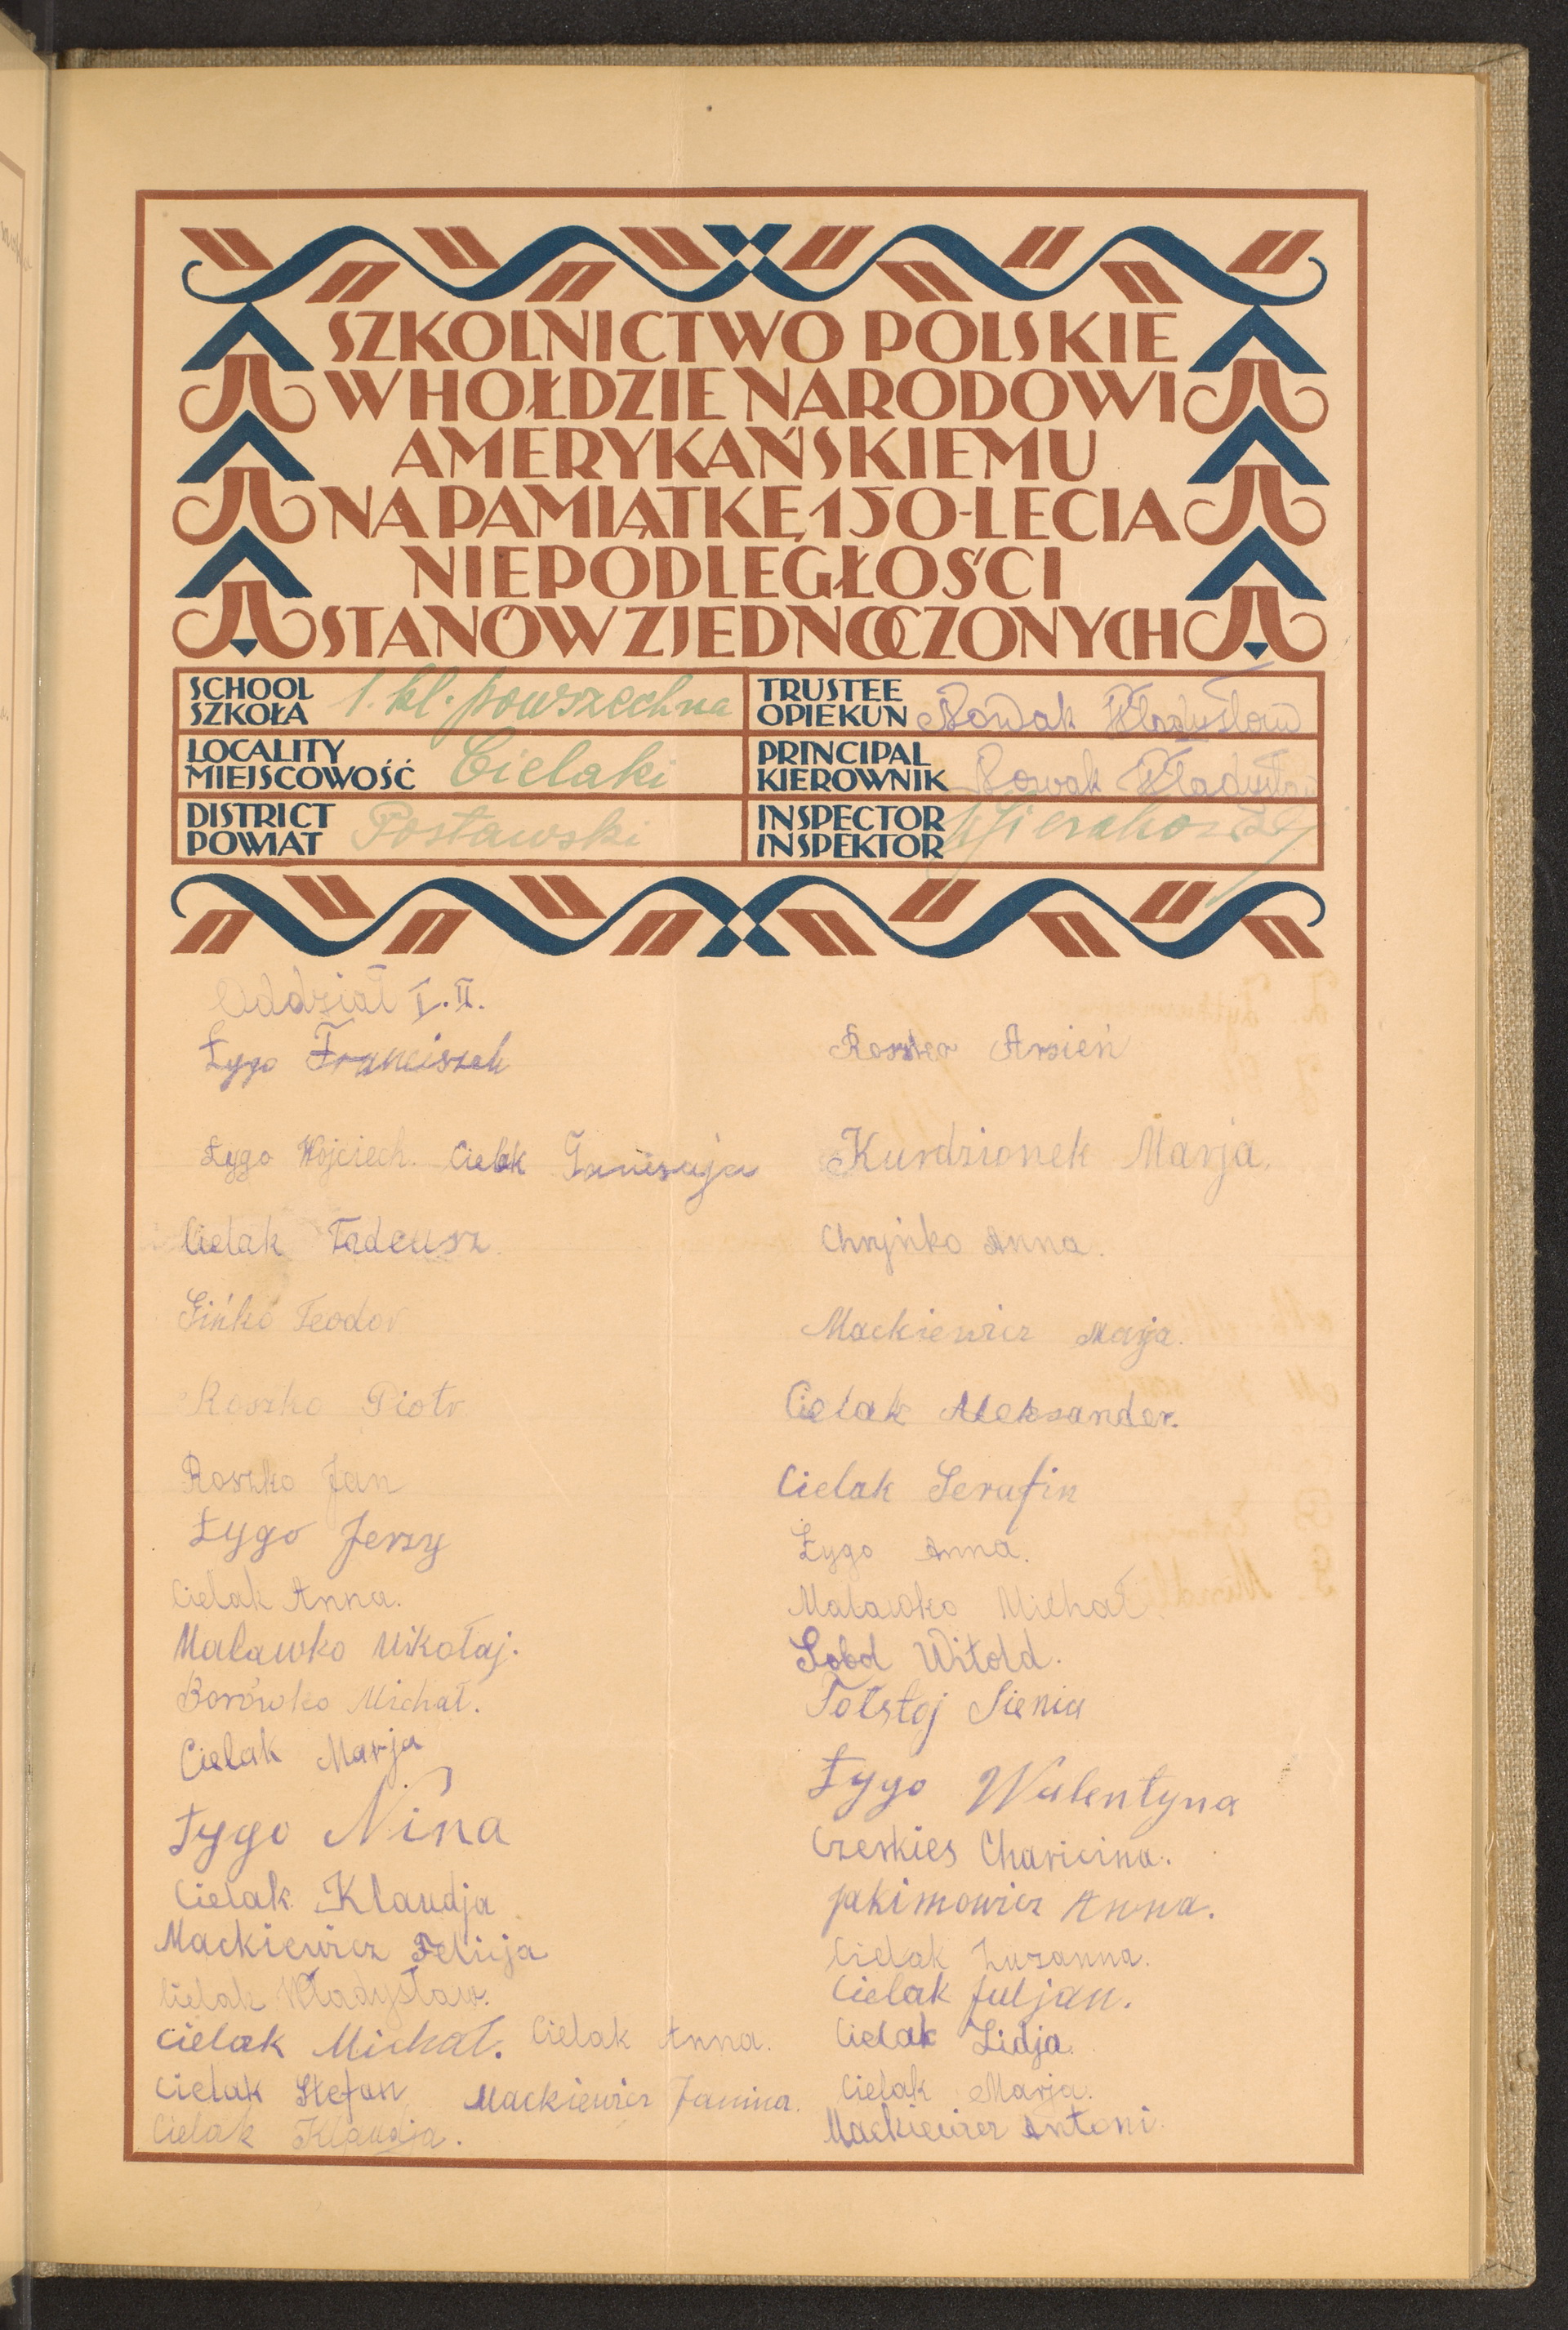 SZKOLNICTWO POLSKIE
W HOŁDZIE NARODOWI
AMERYKAŃSKIEMU
NA PAMIĄTKĘ 150-LECIA
NIEPODLEGŁOŚCI
STANÓW ZJEDNOCZONYCH
SCHOOL
SZKOŁA 1. kl. powszechna
LOCALITY
MIEJSCOWOŚĆ Cielaki
DISTRICT
POWIAT Postawski
TRUSTEE
OPIEKUN Nowak Władysław
PRINCIPAL
KIEROWNIK Nowak Władysław
INSPECTOR
INSPEKTOR
Oddział I. II.
Łygo Franciszek
Łygo Wojciech. Cielak
Cielak Tadeusz.
Teodor
Roszko Piotr
Roszko Jan
Łygo Jerzy
Cielak Anna.
Malawko Mikołaj.
Borówko Michał.
Cielak Marja
Łygo Nina
Cielak Klaudja
Mackiewicz Felicja
Cielak Władysław.
Cielak Michał. Cielak Anna.
Cielak Stefan Mackiewicz Janina.
Cielak Klaudja.
Arsień
Kurdzionek Marja.
Chryńko Anna.
Mackiewicz Marja.
Cielak Aleksander.
Cielak Serafin
Łygo Anna.
Malawko Michał
Sobol Witold.
Tołstoj Sienia
Łygo Walentyna
Czerkies Charicina.
Jakimowicz Anna.
Cielak Zuzanna.
Cielak Juljan.
Cielak Lidja.
Cielak Marja.
Mackiewicz Antoni.